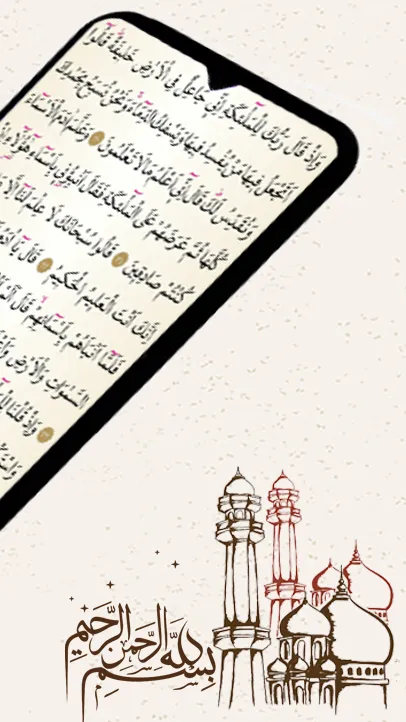 وَإِذْ قَالَ رَبُّكَ لِلْمَلٰٓئِكَةِ إِنِّي جَاعِلٌ فِي الْأَرْضِ خَلِيفَةً قَالُوا
أَتَجْعَلُ فِيهَا مَنْ يُفْسِدُ فِيهَا وَيَسْفِكُ الدِّمَاءَ وَنَحْنُ نُسَبِّحُ بِحَمْدِكَ
وَنُقَدِّسُ لَكَ قَالَ إِنِّي أَعْلَمُ مَا لَا تَعْلَمُونَ وَعَلَّمَ اٰدَمَ الْأَسْمَاءَ
كُلَّهَا ثُمَّ عَرَضَهُمْ عَلَى الْمَلٰٓئِكَةِ فَقَالَ أَنْبِئُونِي بِأَسْمَاءِ هٰٓؤُلَاءِ
كُنْتُمْ صَادِقِينَ قَالُوا سُبْحَانَكَ لَا عِلْمَ لَنَا إِلَّا
إِنَّكَ أَنْتَ الْعَلِيمُ الْحَكِيمُ قَالَ يَا اٰدَمُ
فَلَمَّا أَنْبَأَهُمْ بِأَسْمَائِهِمْ قَالَ
السَّمٰوَاتِ وَالْأَرْضِ
وَإِذْ قُلْنَا
بِسْمِ اللّٰهِ الرَّحْمٰنِ الرَّحِيمِ